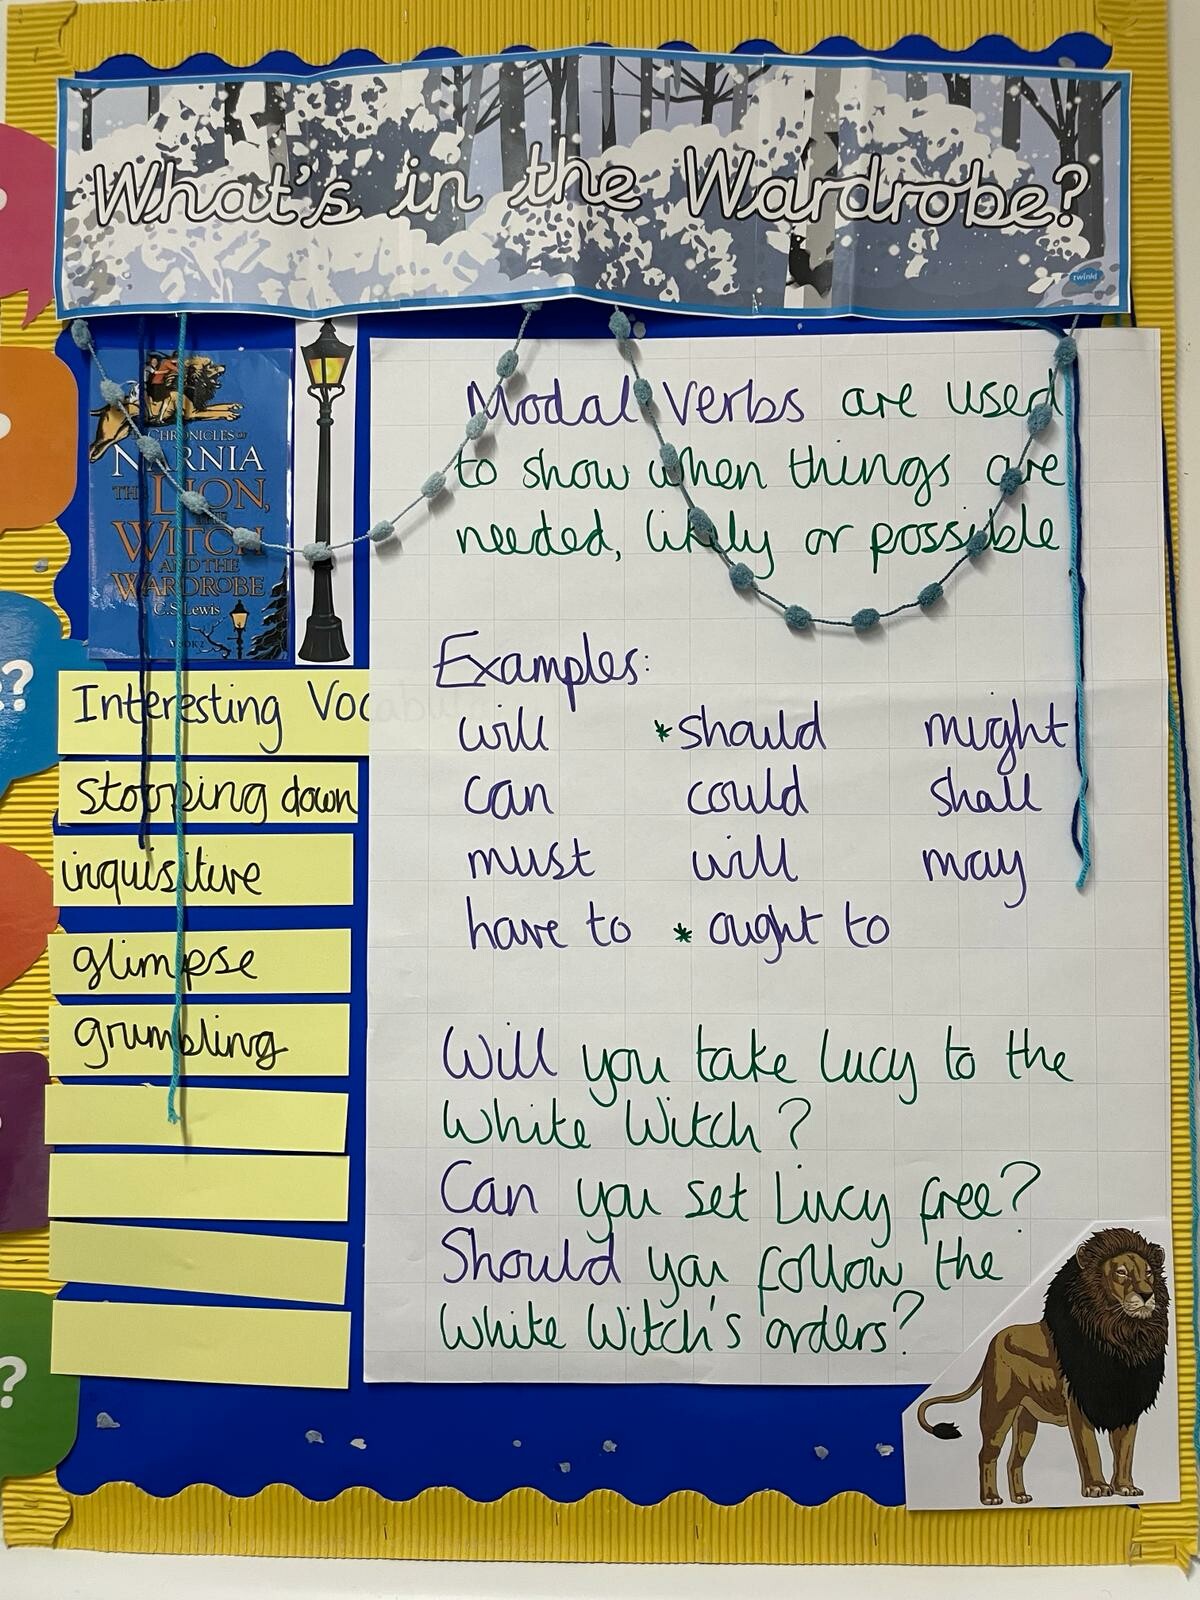 What's in the Wardrobe?
twinkl
THE CHRONICLES OF
NARNIA
THE LION,
THE
WITCH
AND THE
WARDROBE
C.S. Lewis
BOOK 2
Interesting Vocabul
stopping down
inquisitive
glimpse
grumbling
Modal Verbs are used
to show when things are
needed, likely or possible
Examples:
will *should might
can could shall
must will may
have to * ought to
Will you take Lucy to the
White Witch?
Can you set Lucy free?
Should you follow the
White Witch's orders?
??
?